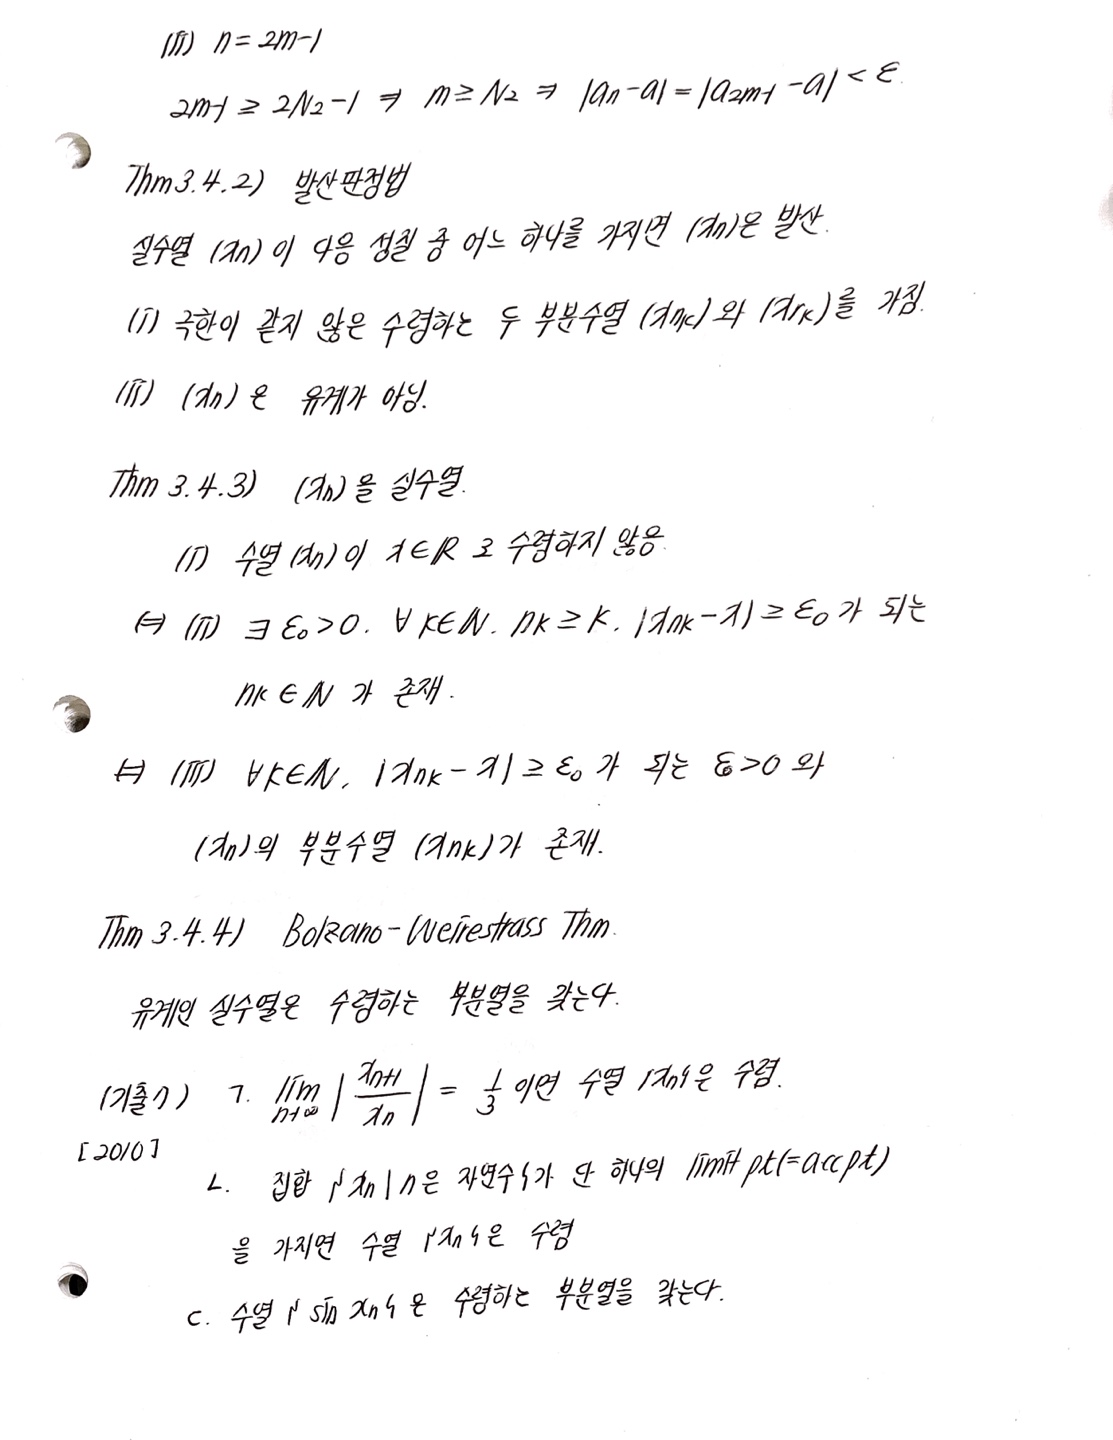 (ii) n = 2m-1
2m-1 ≥ 2N₂-1 ⇒ m ≥ N₂ ⇒ |aₙ-a| = |a₂ₘ₋₁ - a| < ε.
Thm 3.4.2) 발산판정법
실수열 (xₙ)이 다음 성질 중 어느 하나를 가지면 (xₙ)은 발산.
(i) 극한이 같지 않은 수렴하는 두 부분수열 (xnₖ)와 (xrₖ)를 가짐.
(ii) (xₙ)은 유계가 아님.
Thm 3.4.3) (xₙ)을 실수열.
(i) 수열 (xₙ)이 x∈ℝ로 수렴하지 않음.
⇔ (ii) ∃ ε₀>0. ∀ k∈ℕ. nₖ ≥ k. |xnₖ - x| ≥ ε₀가 되는
nₖ ∈ ℕ 가 존재.
⇔ (iii) ∀k∈ℕ, |xnₖ - x| ≥ ε₀ 가 되는 ε₀>0 와
(xₙ)의 부분수열 (xnₖ)가 존재.
Thm 3.4.4) Bolzano-Weirestrass Thm.
유계인 실수열은 수렴하는 부분열을 갖는다.
(기출1) ㄱ. lim n→∞ |xₙ₊₁/xₙ| = 1/3 이면 수열 {xₙ}은 수렴.
[2010]
ㄴ. 집합 {xₙ | n은 자연수}가 단 하나의 limit pt(=acc pt)
을 가지면 수열 {xₙ}은 수렴
ㄷ. 수열 {sin xₙ}은 수렴하는 부분열을 갖는다.